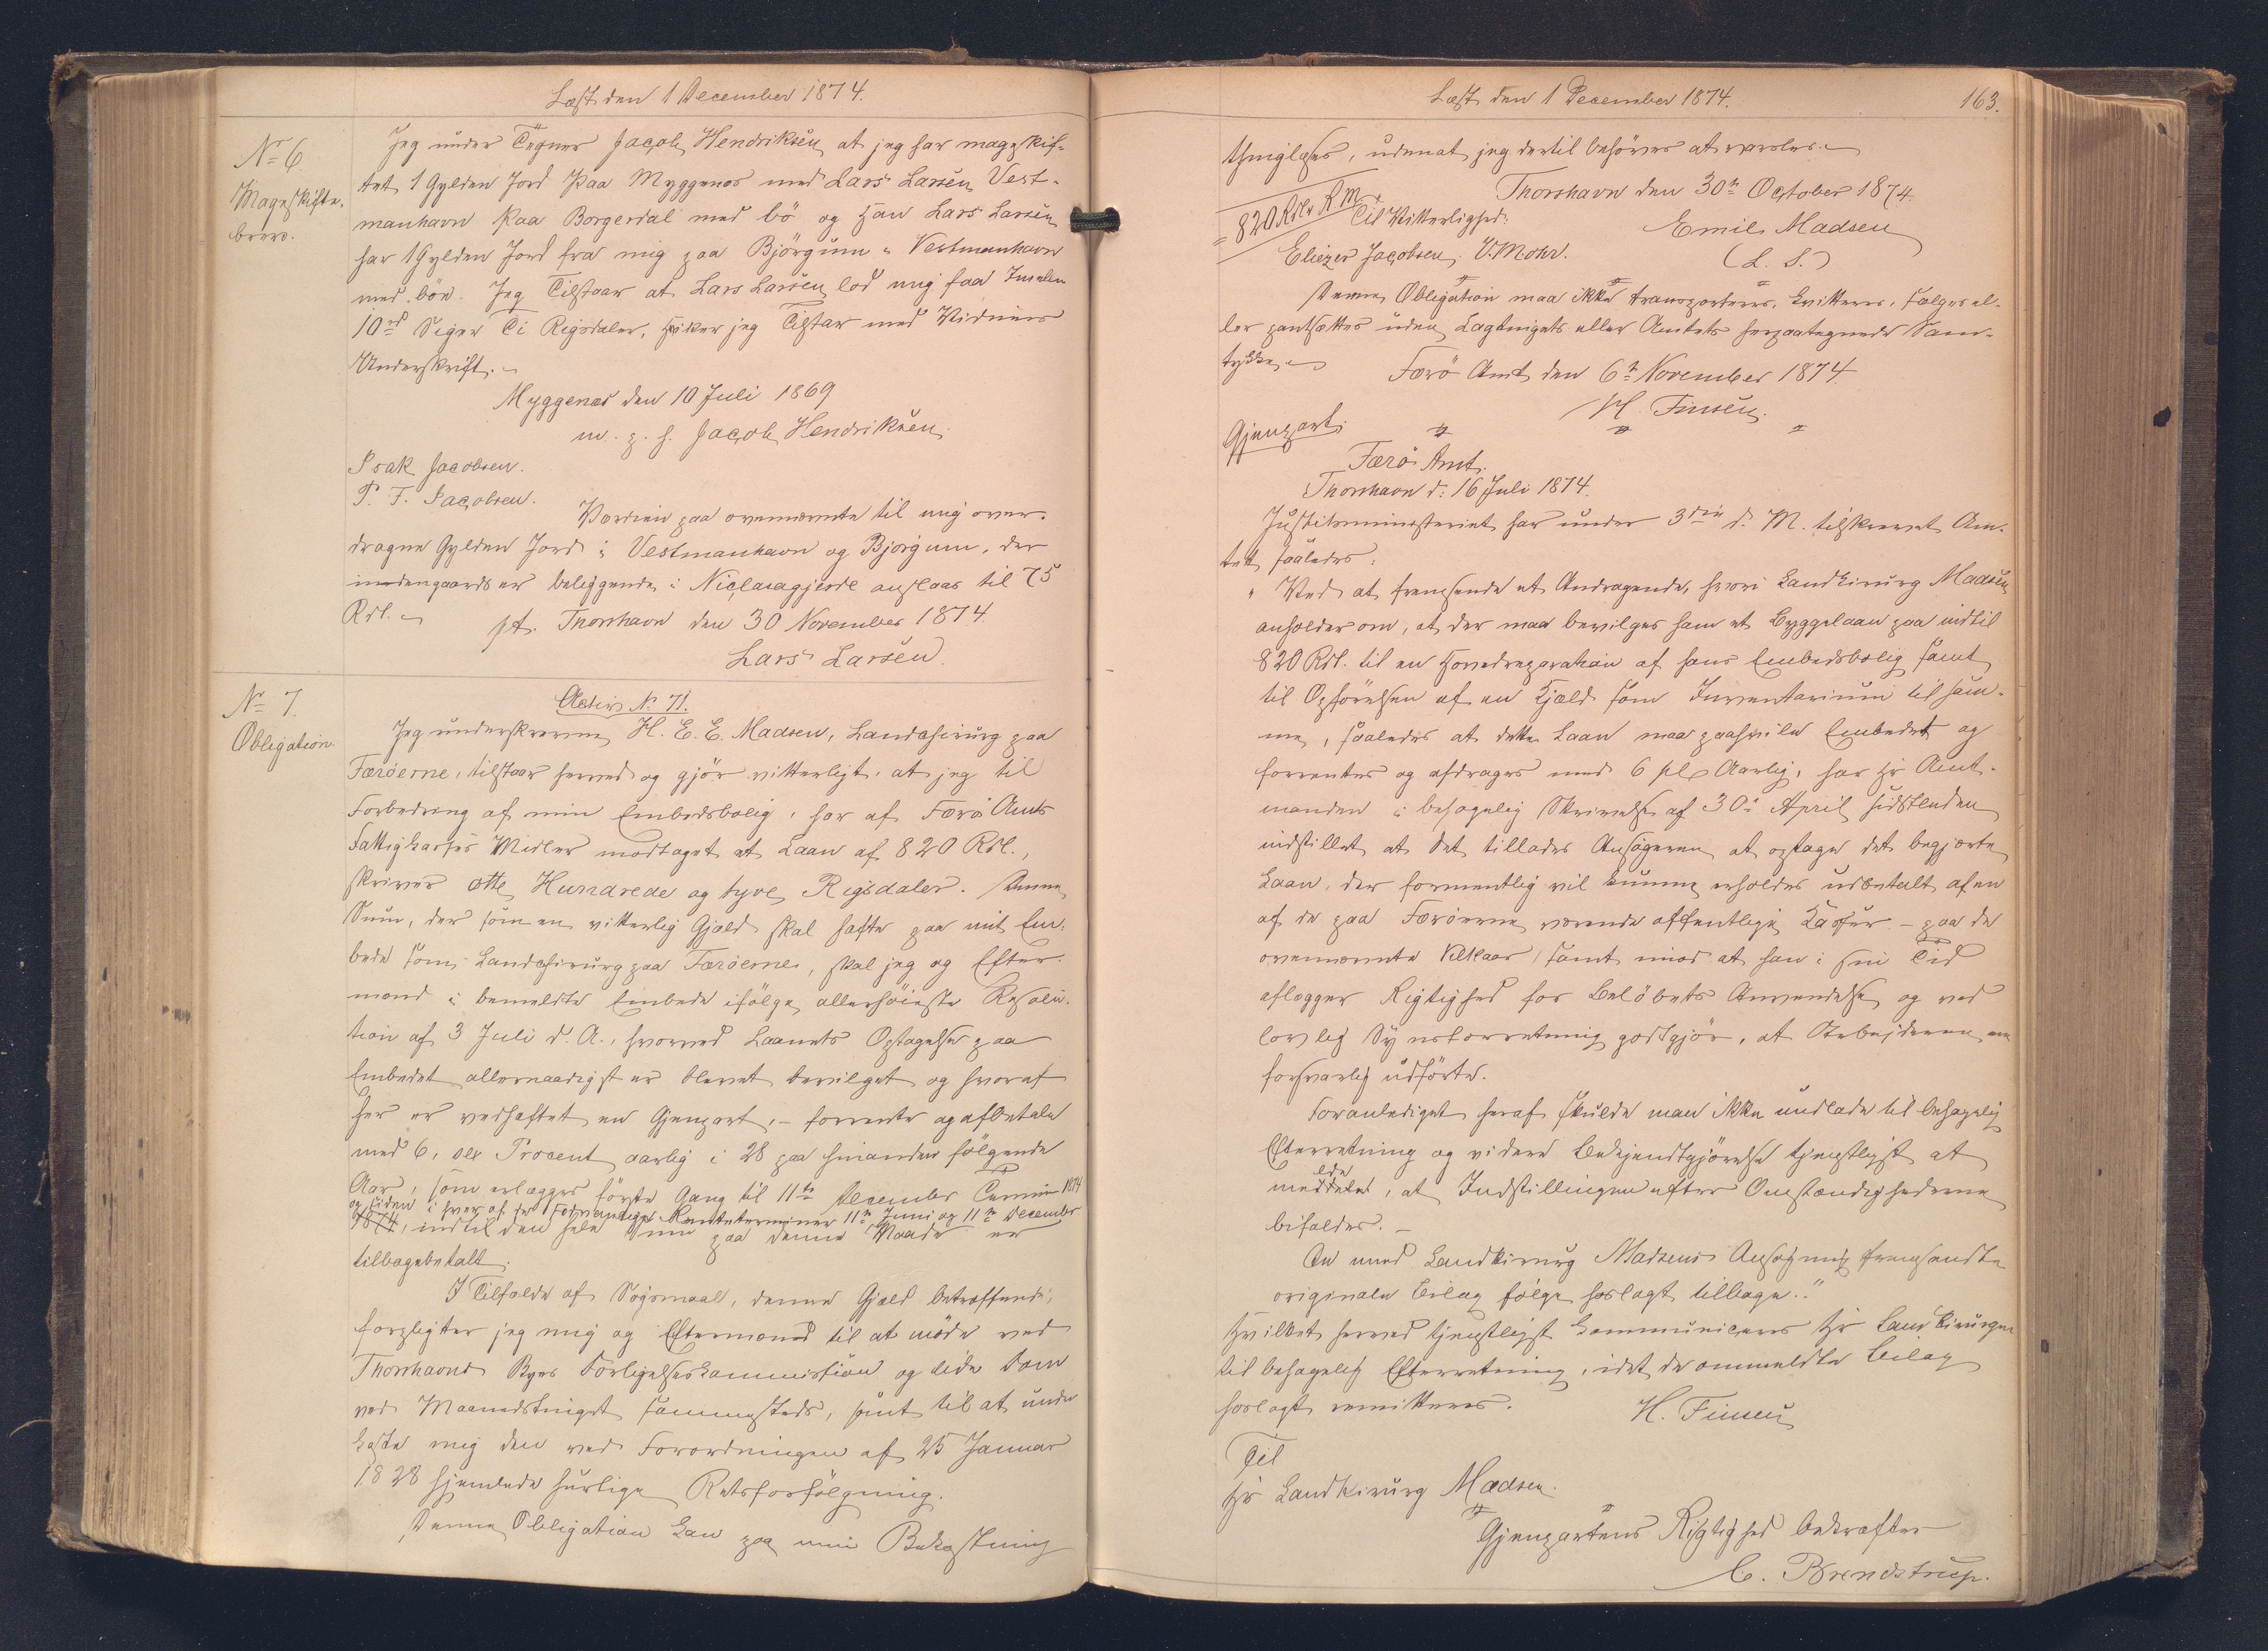 Læst den 1 December 1874.
No 6
Mageskifte-
brev.
Jeg under Tegner Jacob Hendriksen at jeg har mageskif-
tet 1 Gylden Jord paa Myggenæs med Lars Larsen Vest-
manhavn paa Borgerdal med bö og Han Lars Larsen
har 1 Gylden Jord fra mig paa Björgum i Vestmanhavn
med bön. Jeg Tilstaar at Lars Larsen lod mig faa Imellem
10rd Siger Ti Rigsdaler, hvilket jeg Tilstaar med Vidners
Underskrift.
Myggenæs den 10 Juli 1869
m. p. f. Jacob Hendriksen
Isak Jacobsen.
P. F. Jacobsen.
Værdien paa ovennævnte til mig over-
dragne Gylden Jord i Vestmanhavn og Bjorgum, der
indengaards er beliggende i Niclasagjerde anslaaes til 75
Rdl.
pt. Thorshavn den 30 November 1874.
Lars Larsen.
No 7.
Obligation.
Activ No 71.
Jeg underskrevne H. E. E. Madsen, Landchirurg paa
Færöerne, tilstaar herved og gjör vitterligt, at jeg til
Forbedring af min Embedsbolig, har af Færö Amts
Fattigkasses Midler modtaget et Laan af 820 Rdl.,
skriver otte Hundrede og tyve Rigsdaler. Denne
Sum, der som en vitterlig Gjæld skal hæfte paa mit Em-
bede som Landchirurg paa Færöerne, skal jeg og Efter-
mand i bemeldte Embede ifölge allerhöieste Resolu-
tion af 3 Juli d. A., hvorved Laanets Optagelse paa
Embedet allernaadigst er blevet bevilget og hvoraf
her er vedhæftet en Gjenpart, - forrente og afbetale
med 6, sex Procent aarlig i 28 paa hinanden fölgende
Aar, som erlægges förste Gang til 11te December Termin 1874
og siden i hver af de sædvanlige Renteterminer 11te Juni og 11te December
1874, indtil den hele Sum paa denne Maade er
tilbagebetalt.
I Tilfælde af Sögsmaal, denne Gjæld betræffende,
forpligter jeg mig og Eftermand til at möde ved
Thorshavns Byes Forligelseskommission og lide Dom
ved Maanedstinget sammesteds, samt til at under-
kaste mig den ved Forordningen af 25 Januar
1828 hjemlede hurtige Retsforfölgning.
Denne Obligation kan paa min Bekostning
Læst den 1 December 1874.
163.
thinglæses, udenat jeg dertil behöves at varsles.
Thorshavn den 30te October 1874.
= 820 Rdlr R. M.
Til Vitterlighed:
Emil Madsen
Eliezer Jacobsen, V. Mohr.
(L. S.)
Denne Obligation maa ikke transporteres, kvitteres, sælges el-
ler pantsættes uden Lagtingets eller Amtets herpaategnede Sam-
tykke.
Færö Amt den 6te November 1874.
H. Finsen.
Gjenpart.
Færö Amt.
Thorshavn d: 16 Juli 1874.
Justitsministeriet har under 3die d. M. tilskrevet Am-
tet saaledes:
" Ved at fremsende et Andragende, hvori Landkirurg Madsen
anholder om, at der maa bevilges ham et Byggelaan paa indtil
820 Rdl. til en Hovedreparation af hans Embedsbolig samt
til Opförelsen af en Kjæld som Inventarium til sam-
me, saaledes at dette Laan maa paahvile Embedet og
forrentes og afdrages med 6 pCt Aarlig, har Hr Amt-
manden i behagelig Skrivelse af 30te April sidstleden
indstillet at det tillades Ansögeren at optage det begjærte
Laan, der formentlig vil kunne erholdes udbetalt af en
af de paa Færöerne værende offentlige Kasser - paa de
ovennævnte Vilkaar, samt imod at han i sin Tid
aflægger Rigtighed for Belöbets Anvendelse og ved
lovlig Synsforretning godtgjör, at Arbejderne er
forsvarlig udförte.
Foranlediget heraf skulde man ikke undlade til behagelig
Efterretning og videre Bekjendtgjörelse tjenstligst at
meddele, at Indstillingen efter Omstændighederne
bifaldes. -
De med Landkirurg Madsens Ansögning fremsendte
originale Bilag fölge hoslagt tilbage."
Hvilket herved tjenstligst kommuniceres Hr Landkirurgen
til behagelig Efterretning, idet de ommeldte Bilag
hoslagt remitteres.
H. Finsen
Til
Hr Landkirurg Madsen.
Gjenpartens Rigtighed bekræfter
C. Brendstrup.